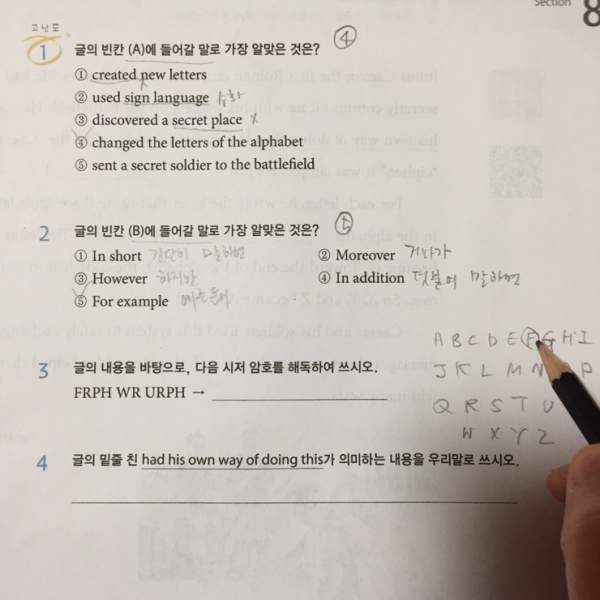 Section
8
고난도
1 글의 빈칸 (A)에 들어갈 말로 가장 알맞은 것은? ④
① created new letters
② used sign language 수화
③ discovered a secret place x
④ changed the letters of the alphabet
⑤ sent a secret soldier to the battlefield
2 글의 빈칸 (B)에 들어갈 말로 가장 알맞은 것은? ⑤
① In short 간단히 말하면 ② Moreover 게다가
③ However 하지만 ④ In addition 덧붙여 말하면
⑤ For example 예를 들어
3 글의 내용을 바탕으로, 다음 시저 암호를 해독하여 쓰시오.
FRPH WR URPH →
A B C D E F G H I
J K L M N P
Q R S T U
W X Y Z
4 글의 밑줄 친 had his own way of doing this가 의미하는 내용을 우리말로 쓰시오.